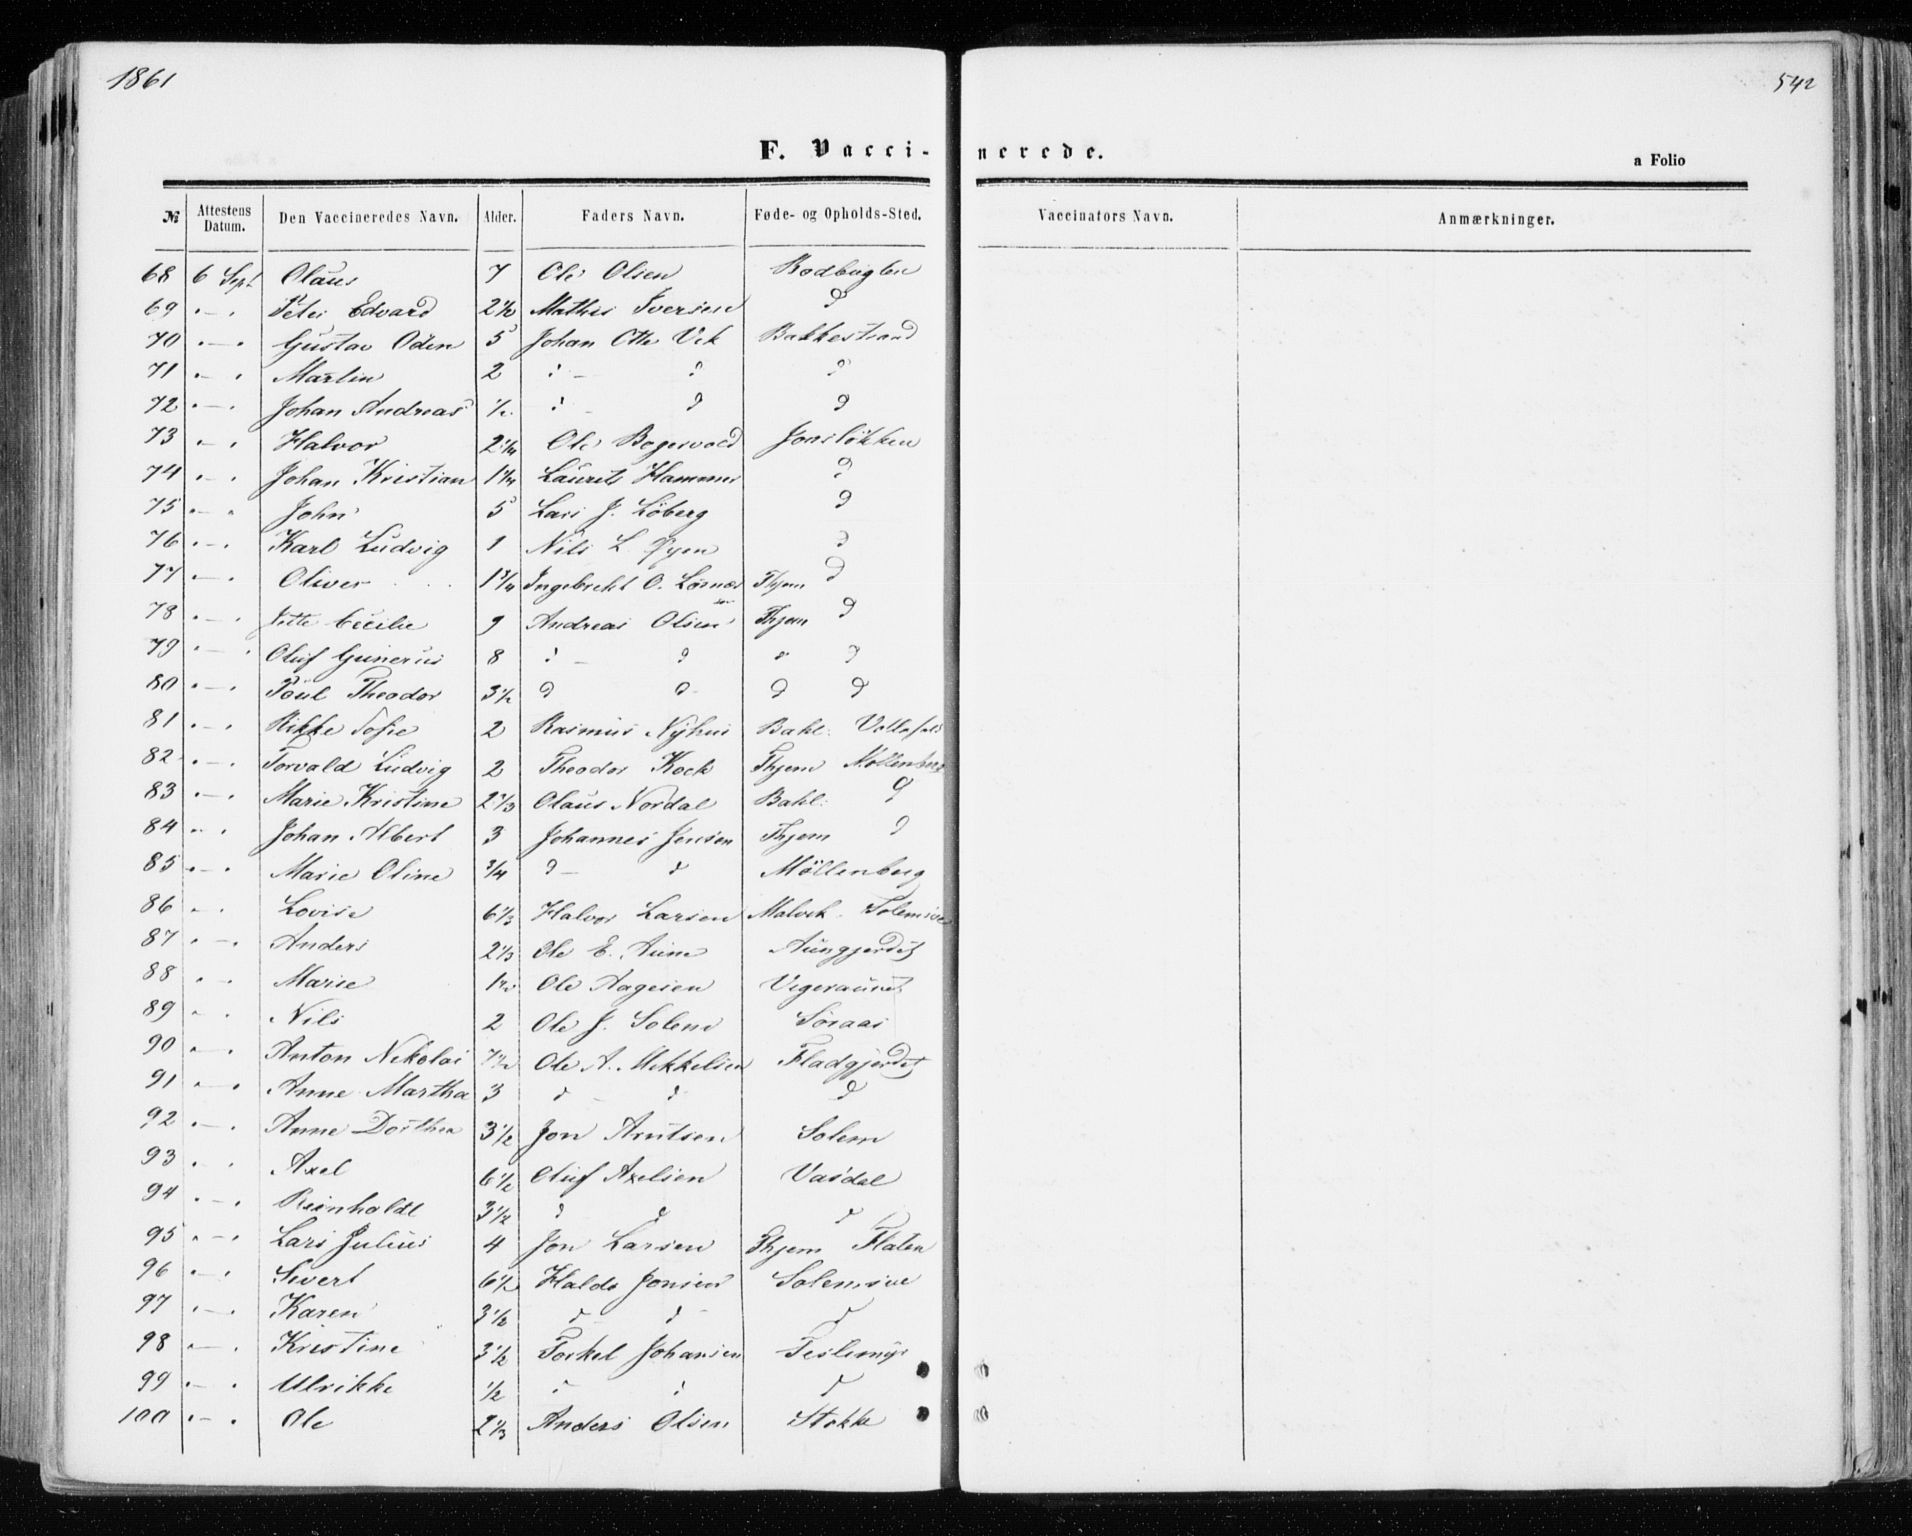 1861
542
F. Vacci-nerede.
a Folio
№ Attestens Datum. Den Vaccineredes Navn. Alder. Faders Navn. Føde- og Opholds-Sted. Vaccinators Navn. Anmærkninger.
68 6 Sept Olaus 7 Ole Olsen
69 " — " Peter Edvard 2 1/2 Mathis Iversen d
70 " — " Gustav Oden 5 Johan Otto Vek Bakkestrand
71 " — " Martin 2 d — d d
72 " — " Johan Andreas 1/2 d — d d
73 " — " Halvor 2 1/4 Ole Jonsløkken
74 " — " Johan Kristian 1 1/4 Laurits Hammer d
75 " — " John 5 Lars J. Löberg d
76 " — " Karl Ludvig 1 Nils L Øyen d
77 " — " Oliver 1 3/4 Ingebrekt O. Thjem d
78 " — " Jette Cecilie 9 Andreas Olsen Thjem d
79 " — " Oluf Gunerius 8 d — d d d
80 " — " Paul Theodor 3 1/2 d d d d
81 " — " Rikke Sofie 2 Rasmus Nyhus Bakl.
82 " — " Torvald Ludvig 2 Theodor Kock Thjem Möllenberg
83 " — " Marie Kristine 2 1/3 Olaus Nordal Bakl. d
84 " " Johan Albert 3 Johannes Jensen Thjem d
85 " — " Marie Oline 3/4 d — d Möllenberg
86 " " Lovise 6 1/3 Halvor Larsen Malvik
87 " — " Anders 2 1/3 Ole E. Aune Aungjerdet
88 " " Marie 1 1/2 Ole Aagesen
89 " " Nils 2 Ole J. Solem Soraas
90 " — " Anton Nikolai 7 1/2 Ole A. Mikkelsen Fladgjerdet
91 " — " Anne Martha 3 d — d d
92 " — " Anne Dorthea 3 1/2 Jon Arntsen Solem
93 " " Axel 6 1/2 Oluf Axelsen Vasdal
94 " — " Reinholdt 3 1/2 d d d
95 " — " Lars Julius 4 Jon Larsen Thjem Flaten
96 " — " Sivert 6 1/2 Haldo Jonsen
97 " — " Karen 3 1/2 d d d
98 " — " Kristine 3 1/2 Torkel Johansen
99 " — " Ulrikke 1/2 d d d
100 " — " Ole 2 1/3 Anders Olsen Stokke